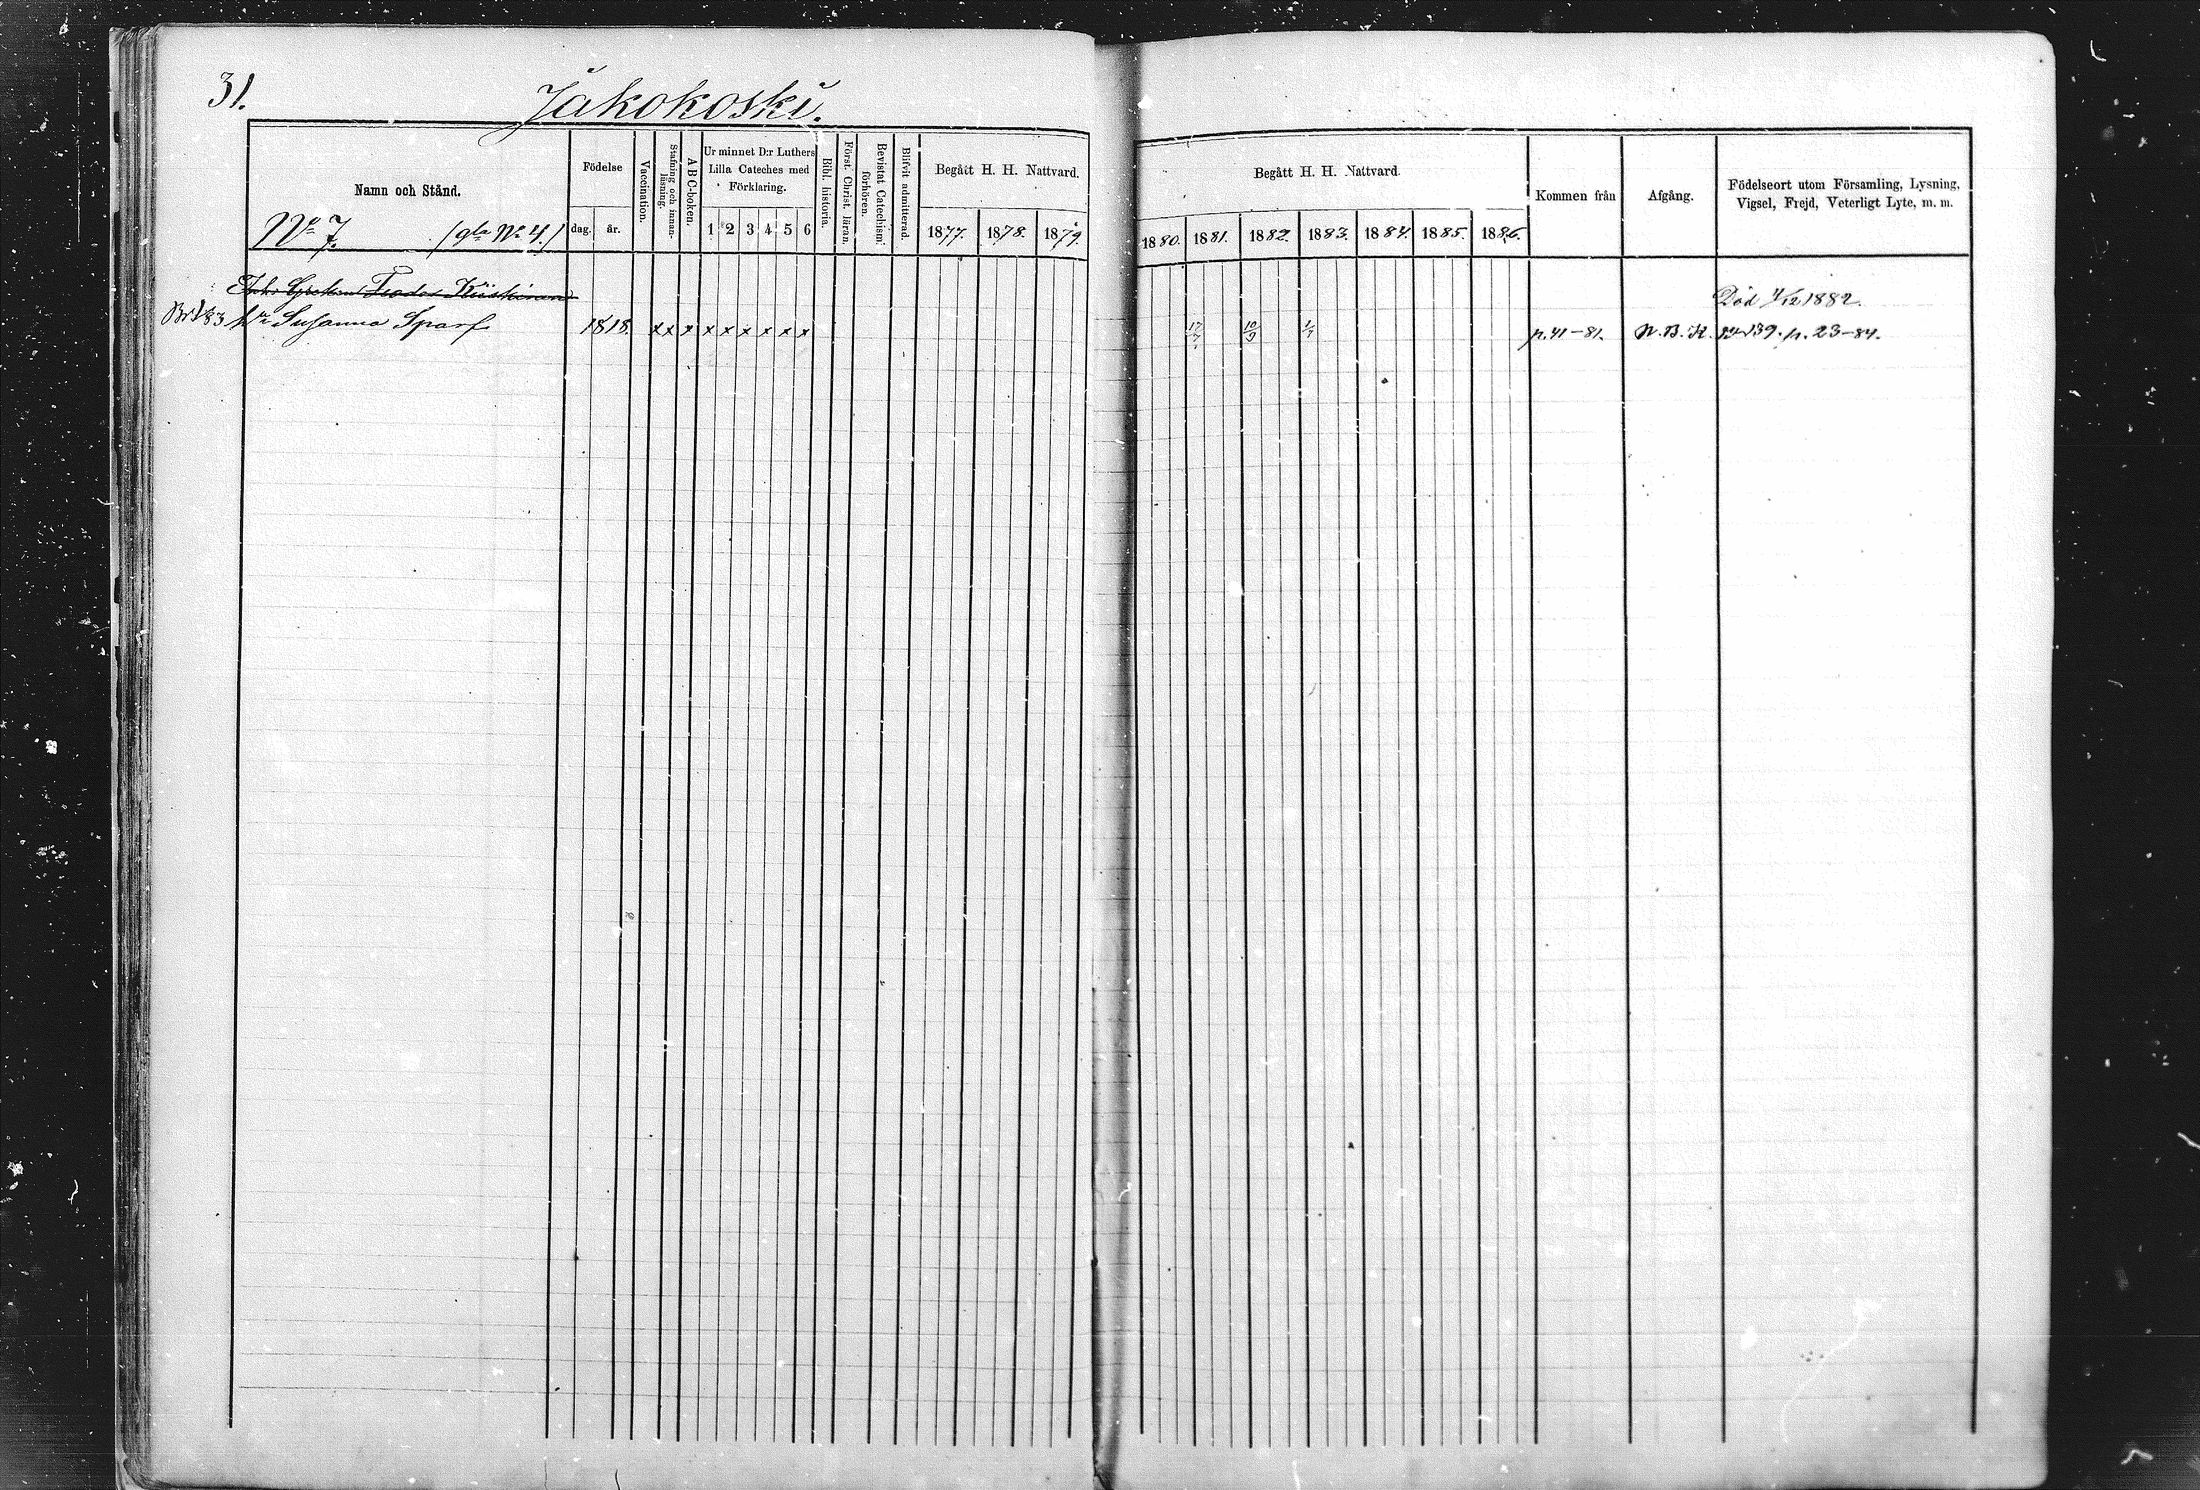 31.
Jakokoski.
Namn och Stånd.
No 7. /gla No 4./
Födelse
dag. år.
Vaccination.
Stafning och innanläsning.
ABC-boken.
Ur minnet D:r Luthers
Lilla Cateches med
Förklaring.
1 2 3 4 5 6
Bibl. historia.
Först. Christ. läran.
Bevistat Catechismiförhören.
Blifvit admitterad.
Begått H. H. Nattvard.
1877. 1878. 1879.
Begått H. H. Nattvard.
1880. 1881. 1882. 1883. 1884. 1885. 1886.
Kommen från
Afgång.
Födelseort utom Församling, Lysning,
Vigsel, Frejd, Veterligt Lyte, m. m.
Feodor Kiiskinen Död 1/12 1882.
Susanna Sparf 1818. x x x x x x x x x 17/7 10/9 p. 41-81. N. B. K. 139. p. 23-84.